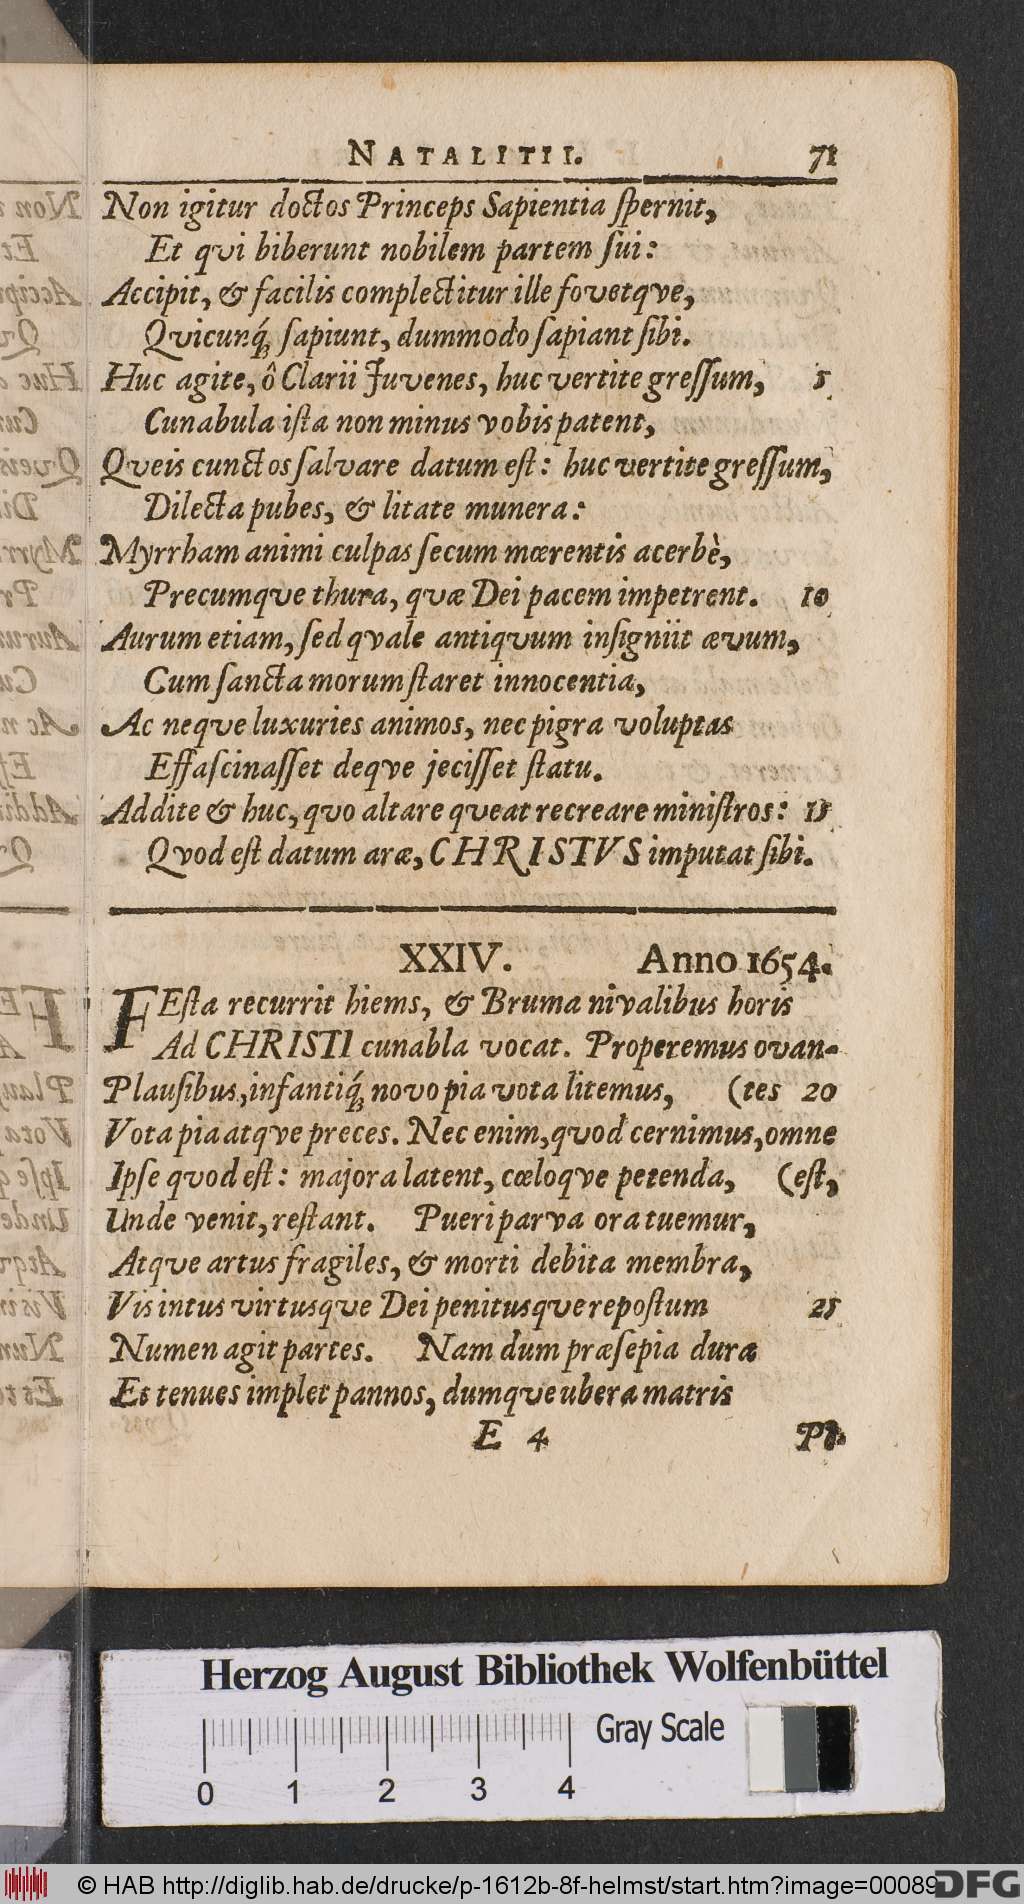 NATALITII. 71
Non igitur doctos Princeps Sapientia ſpernit,
Et qvi biberunt nobilem partem ſui:
Accipit, & facilis complectitur ille fovetqve,
Qvicunq́ꝫ ſapiunt, dummodo ſapiant ſibi.
Huc agite, ô Clarii Juvenes, huc vertite greſſum, 5
Cunabula iſta non minus vobis patent,
Qveis cunctos ſalvare datum eſt: huc vertite greſſum,
Dilecta pubes, & litate munera:
Myrrham animi culpas ſecum mœrentis acerbè,
Precumqve thura, quæ Dei pacem impetrent. 10
Aurum etiam, ſed qvale antiqvum inſigniit ævum,
Cum ſancta morum ſtaret innocentia,
Ac neqve luxuries animos, nec pigra voluptas
Effaſcinaſſet deqve jeciſſet ſtatu.
Addite & huc, qvo altare qveat recreare miniſtros: 15
Qvod eſt datum aræ, CHRISTVS imputat ſibi.
XXIV. Anno 1654.
FEſta recurrit hiems, & Bruma nivalibus horis
Ad CHRISTI cunabla vocat. Properemus ovan-
Plauſibus, infantiq́ꝫ novo pia vota litemus, (tes 20
Vota pia atqve preces. Nec enim, qvod cernimus, omne
Ipſe qvod eſt: majora latent, cœloqve petenda, (eſt,
Unde venit, reſtant. Pueri parva ora tuemur,
Atqve artus fragiles, & morti debita membra,
Vis intus virtusqve Dei penitusqve repoſtum 25
Numen agit partes. Nam dum præſepia dura
Et tenues implet pannos, dumqve ubera matris
E 4
Herzog August Bibliothek Wolfenbüttel
Gray Scale
0 1 2 3 4
© HAB http://diglib.hab.de/drucke/p-1612b-8f-helmst/start.htm?image=00089
DFG